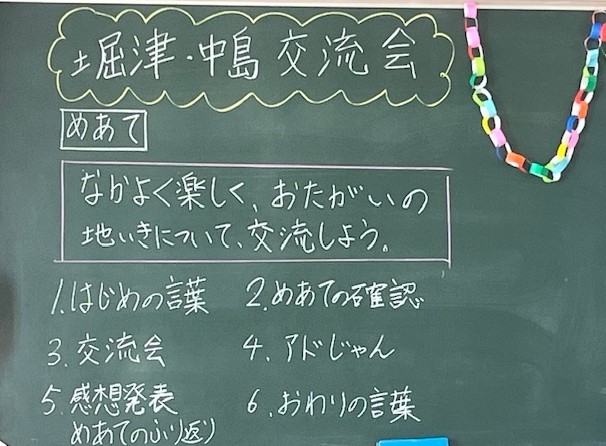 堀津・中島 交流会
めあて
なかよく楽しく、おたがいの
地いきについて、交流しよう。
1.はじめの言葉 2.めあての確認
3.交流会 4.アドじゃん
5.感想発表 6.おわりの言葉
めあてのふり返り